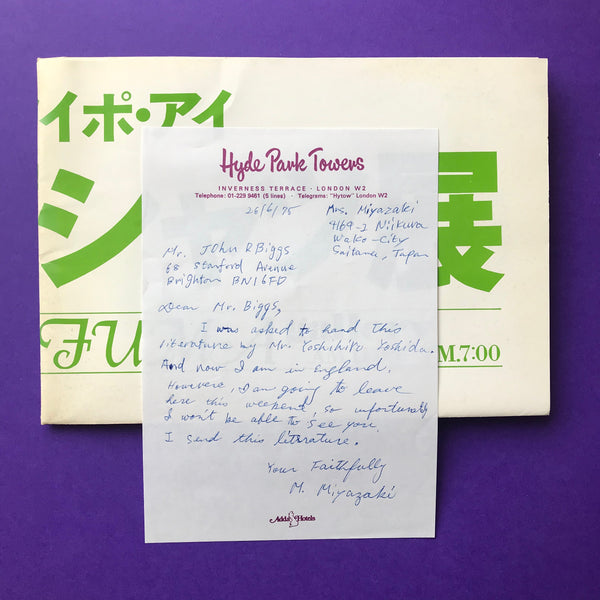 イポ・アイ
シ
展
FU
M.7:00
Hyde Park Towers
INVERNESS TERRACE · LONDON W2
Telephone: 01-229 9461 (5 lines) · Telegrams: "Hytow" London W2
26/6/75
Mrs. Miyazaki
4169-2 Niikura
Wako-City
Saitama, Japan
Mr. John R Biggs
68 Stanford Avenue
Brighton BN1 6FD
Dear Mr. Biggs,
I was asked to hand this
literature my Mr. Yoshihiro Yoshida.
And now I am in England.
Howevere, I am going to leave
here this weekend, so unfortunatly
I won't be able to see you.
I send this litrature.
Your Faithfully
M. Miyazaki
Adda Hotels